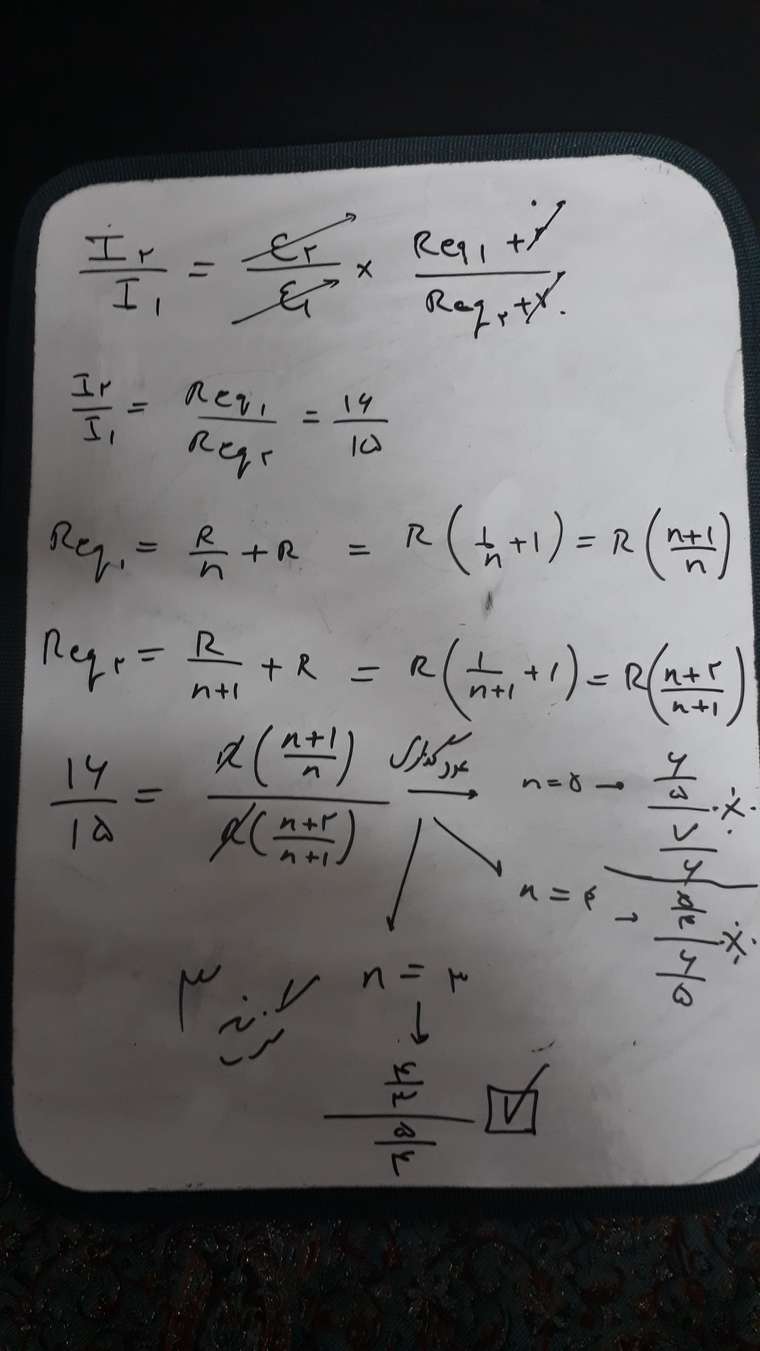 I۲/I۱ = ε۲/ε۱ × Req۱ + r/Req۲ + r
I۲/I۱ = Req۱/Req۲ = ۱۶/۱۵
Req۱ = R/n + R = R(1/n + 1) = R(n+1/n)
Req۲ = R/n+1 + R = R(1/n+1 + 1) = R(n+۲/n+1)
۱۶/۱۵ = R(n+1/n)/R(n+۲/n+1) → n=۵ → ۶/۵/۷/۶
n = ۴ → ۵/۴/۶/۵
n = ۳
۴/۳/۵/۴